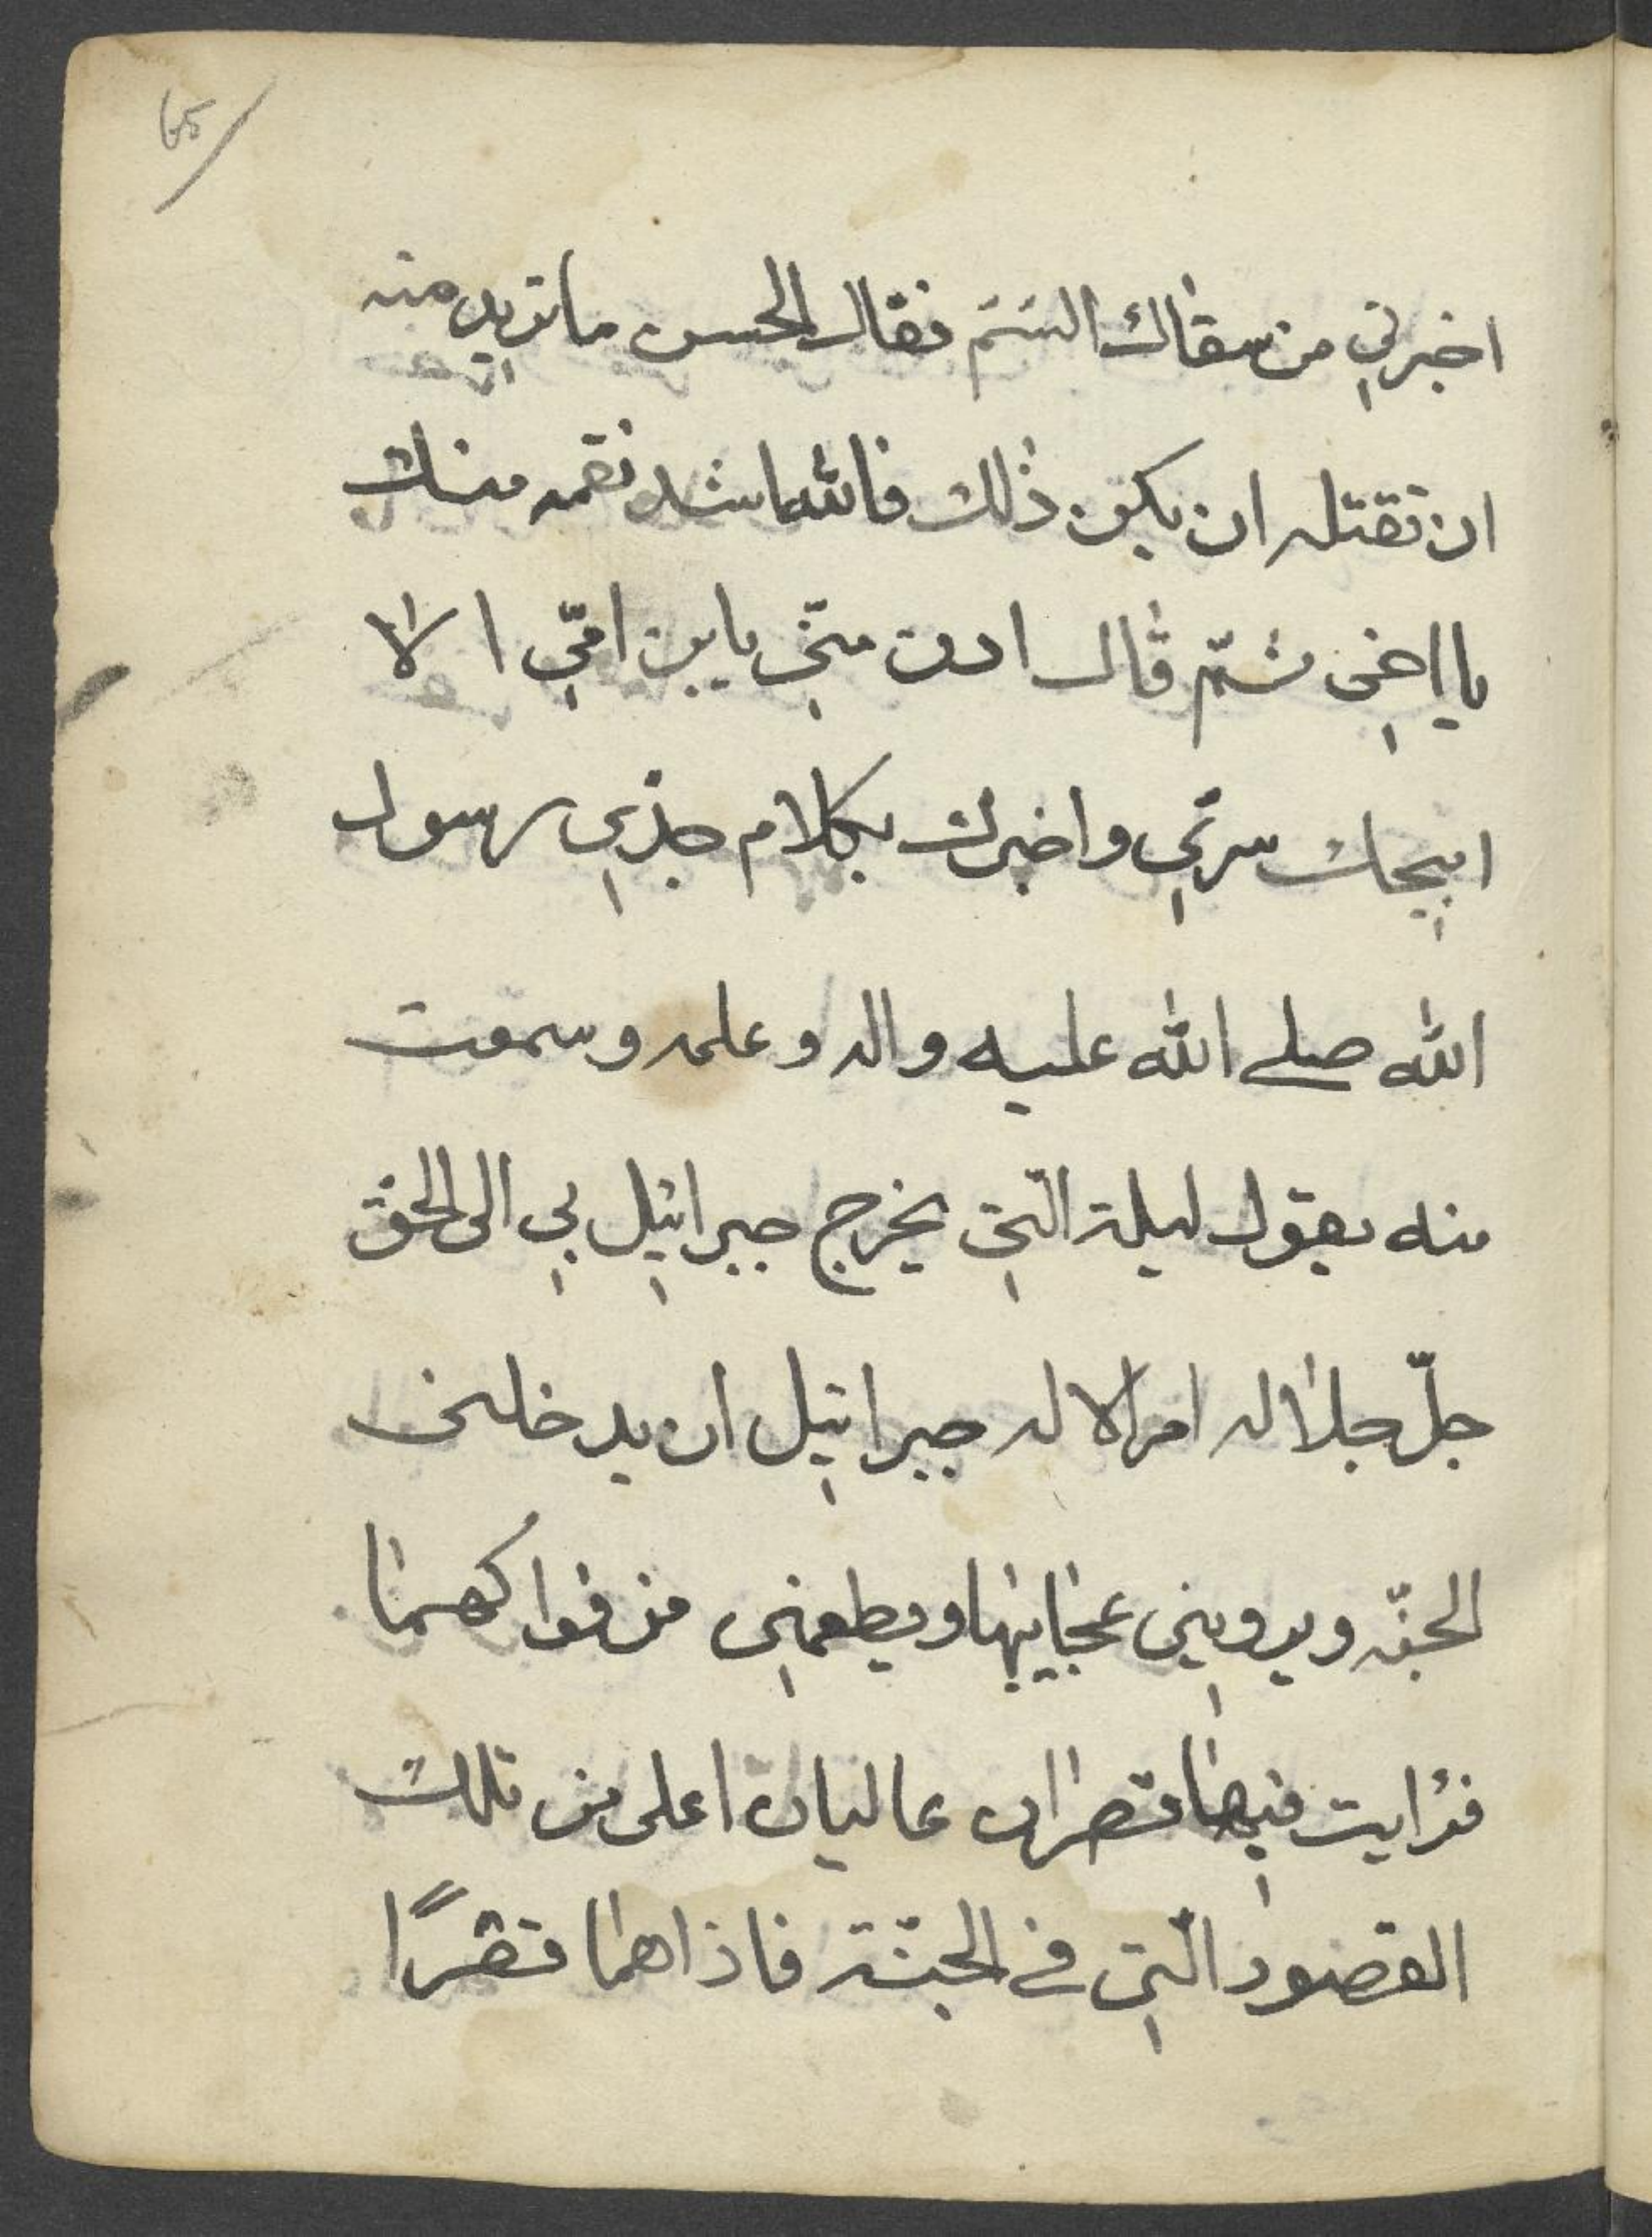 65
اخبرني من سقاك السّم فقال الحسن ما تريد منه
ان تقتله ان يكن ذلك فالله اشد نقمه منك
يا اخي ثمّ قال ادن منّي يا بن امّي الا
ابيحك سرّي واخبرك بكلام جدّي رسول
الله صلے الله عليه واله وعلمه وسمعت
منه يقول ليلة الّتي يخرج جبرائيل بي الى الحق
جلّ جلاله امر الاله جبرائيل ان يدخلني
الجنّه ويرويني عجايبها ويطعمني من فواكهها
فرايت فيها قصران عاليان اعلى من تلك
القصور الّتي في الجنّة فاذا هما قصرًا